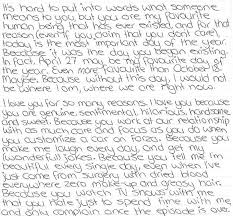 It's hard to put into words what someone
means to you, but you are my favourite
human being that has ever existed, and for that
reason (even if you claim that you don't care),
today is the most important day of the year.
Because it was the day you began existing.
In fact, April 27 may be my favourite day of
the year. Even more favourite than October 26.
Maybe. Because without this day, I would not
be where I am, where we are right now.
I love you for so many reasons. I love you because
you are genuine, sentimental, hilarious, handsome
and sweet. Because you work at our relationship
with as much care and focus as you do when
you customize a car on Forza. Because you
make me laugh every day, and get my
wonderful jokes. Because you tell me I'm
beautiful every single day, even when I've
just come from surgery with dried blood
everywhere zero make up and greasy hair.
Because you watch TV shows with me
that you hate just to spend time with me
and only complain once the episode is over.